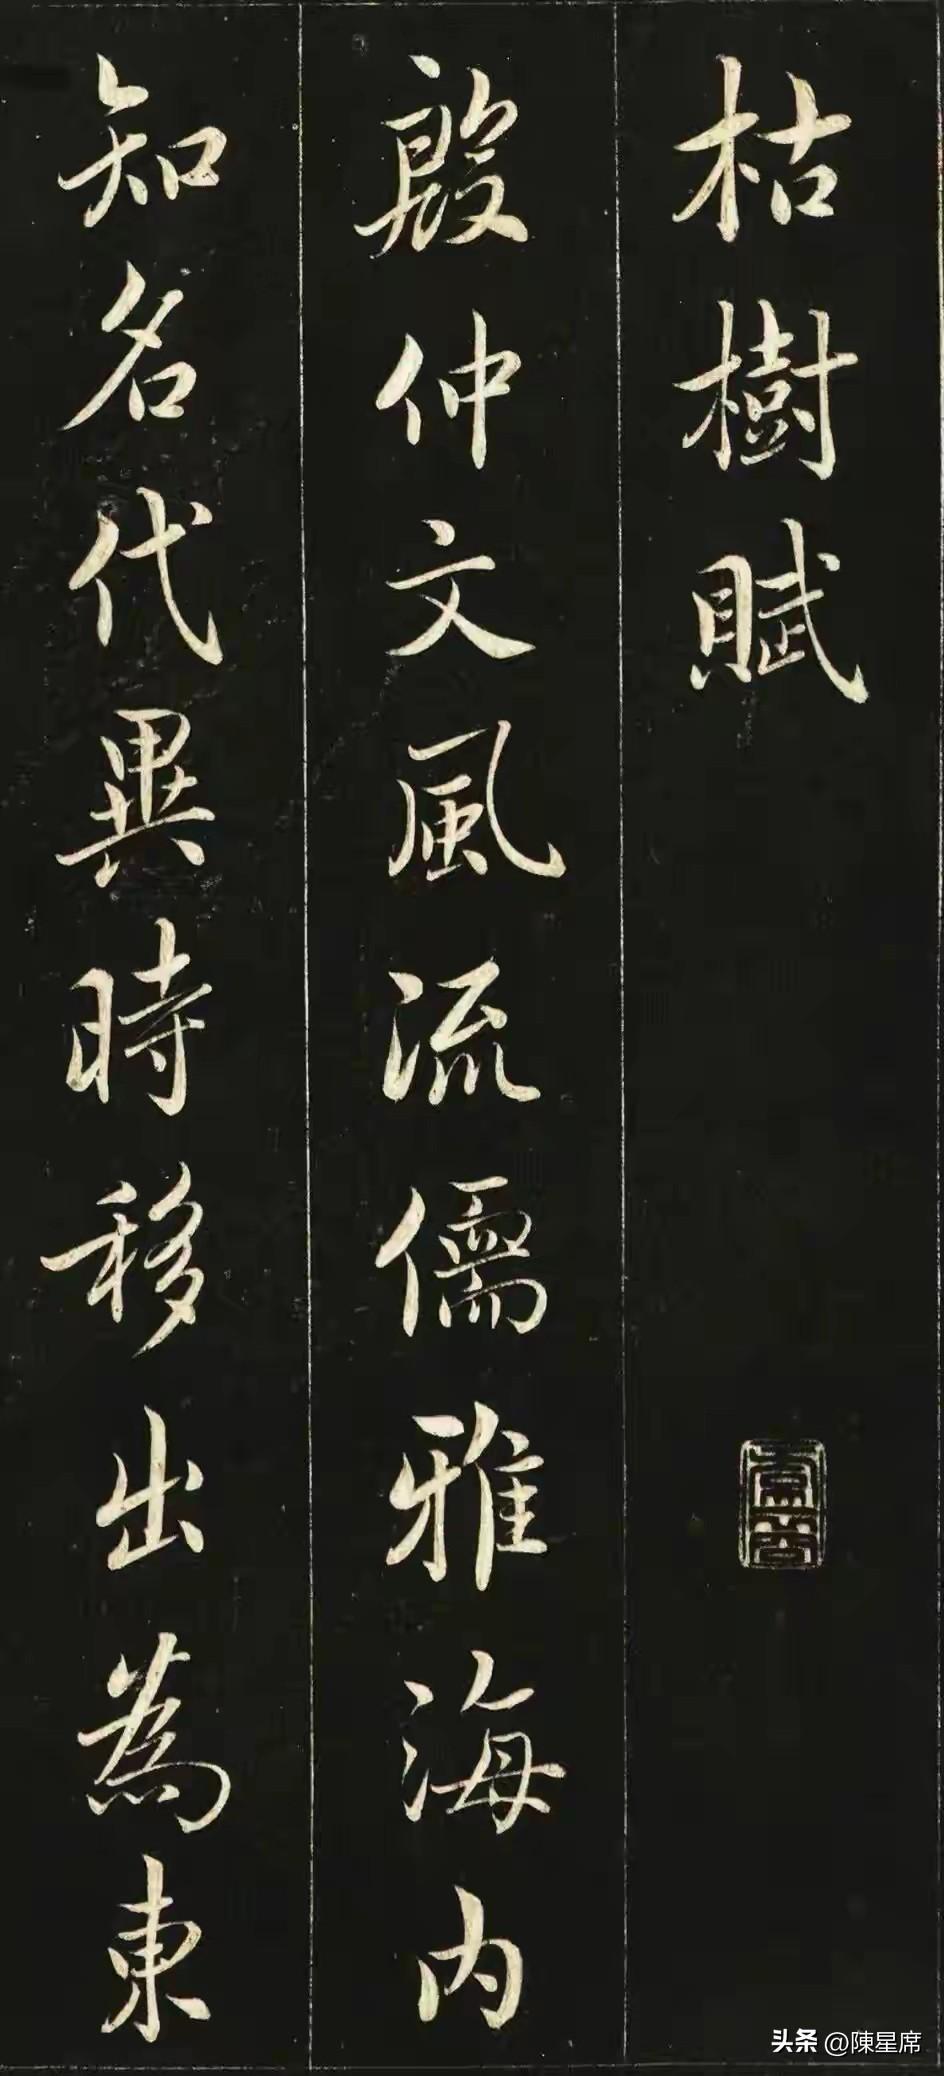 枯樹賦
殷仲文風流儒雅海内
知名代異時移出為東
头条 @陳星席